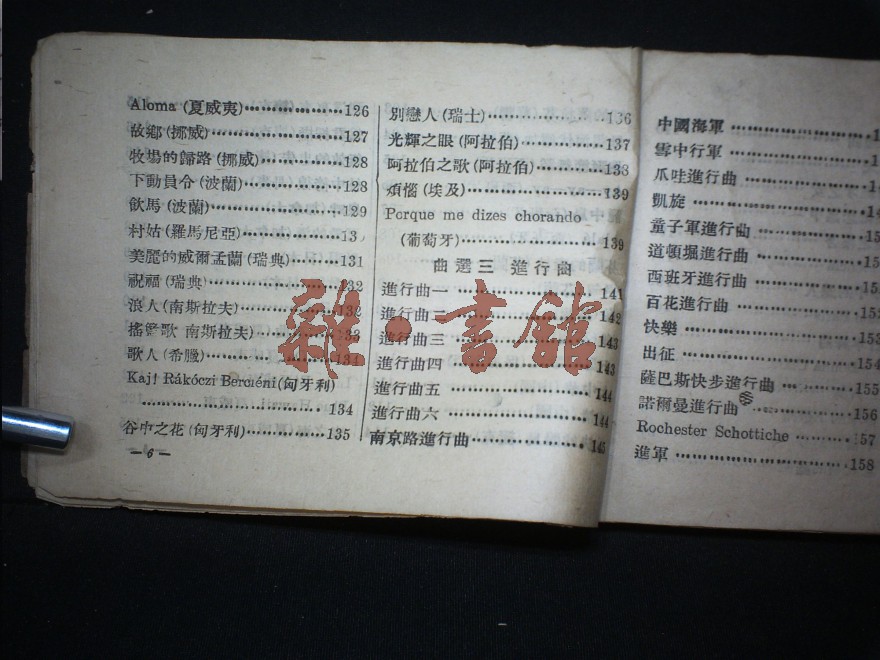 Aloma (夏威夷)··················126
故鄉(挪威)·····················127
牧場的歸路(挪威)···············128
下動員令(波蘭)·················128
飲馬(波蘭)·····················129
村姑(羅馬尼亞)·················13
美麗的威爾孟蘭(瑞典)···········131
祝福(瑞典)·····················132
浪人(南斯拉夫)·················132
搖管歌 南斯拉夫)···············133
歌人(希臘)·····················134
Kaj! Rákóczi Berciéni(匈牙利)
·····················134
谷中之花(匈牙利)···············135
—6—
別戀人(瑞士)···················136
光輝之眼(阿拉伯)···············137
阿拉伯之歌(阿拉伯)·············138
煩惱(埃及)·····················139
Porque me dizes chorando
(葡萄牙)·····················139
曲選三 進行曲
進行曲一·····················141
進行曲二·····················142
進行曲三·····················143
進行曲四·····················143
進行曲五·····················144
進行曲六·····················144
南京路進行曲·················145
中國海軍·····················1
雪中行軍·····················14
爪哇進行曲···················14
凱旋·························14
童子軍進行曲·················15
道頓堀進行曲·················15
西班牙進行曲·················152
百花進行曲···················152
快樂·························153
出征·························154
薩巴斯快步進行曲·············155
諾爾曼進行曲·················156
Rochester Schottiche·········157
進軍·························158
雜·書館